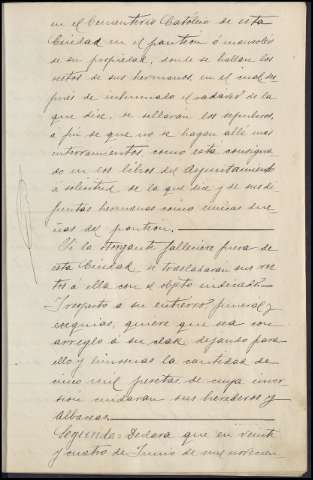 en el Cementerio Católico de esta
Ciudad en el panteon ó mausoleo
de su propiedad, donde se hallan los
restos de sus hermanos en el cual des
pues de inhumado el cadáver de la
que dice, se sellarán los sepulcros,
á fin de que no se hagan alli mas
interramientos como está consigna
do en los libros del Ayuntamiento
á solicitud de la que dice y de sus di
funtas hermanas como unicas due
ñas del panteon.
Si la otorgante falleciere fuera de
esta Ciudad se trasladaran sus res
tos a ella con el objeto indicado.
Y respecto a su entierro, funeral y
exequias, quiere que sea con
arreglo á su clase dejando para
ello y limosnas la cantidad de
cinco mil pesetas de cuya inver
sion cuidaran sus herederos y
albaceas.
Segunda: Declara que en veinte
y cuatro de Junio de mil novecien